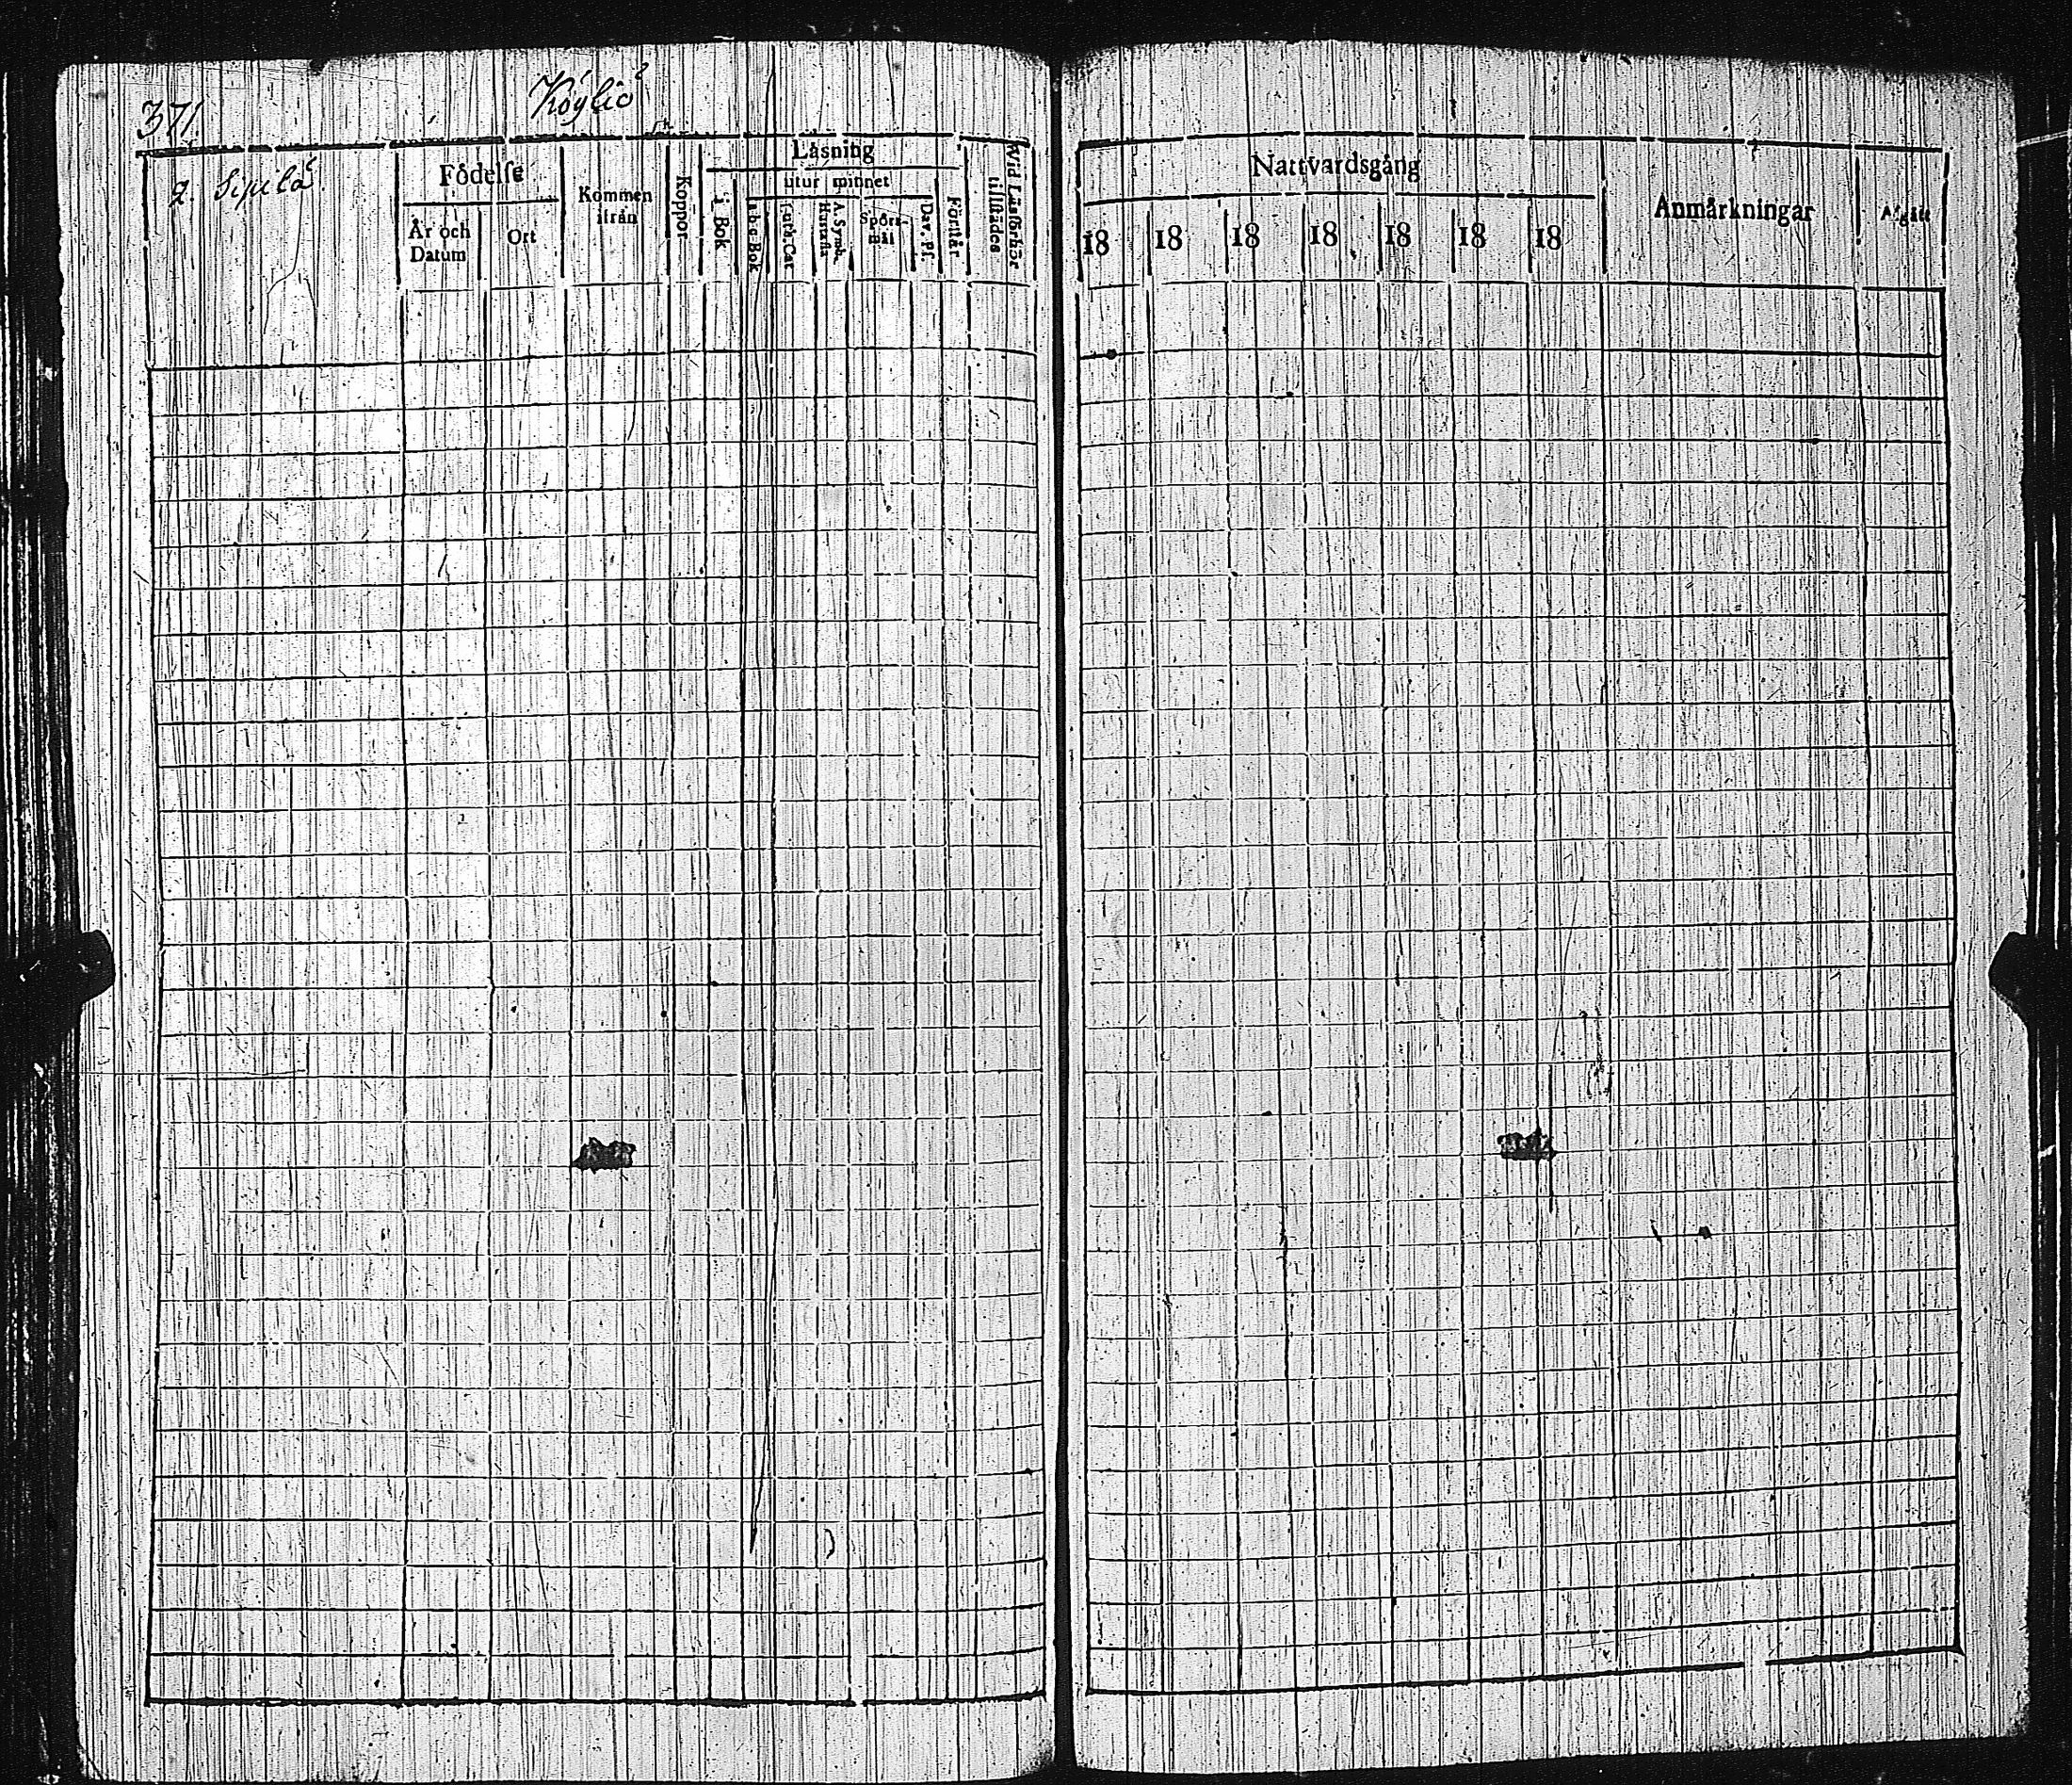 371.
Köyliö
2. Sipilä
Födelse
År och
Datum
Ort
Kommen
ifrån
Koppor
Läsning
i Bok
utur minnet
a b c Bok
Luth. Cat
A. Symb.
Hustafla
Spörs-
mål
Dav. Ps.
Förstår
Wid Läsförhör
tillstädes
Nattvardsgång
18 18 18 18 18 18 18
Anmärkningar
Afgått